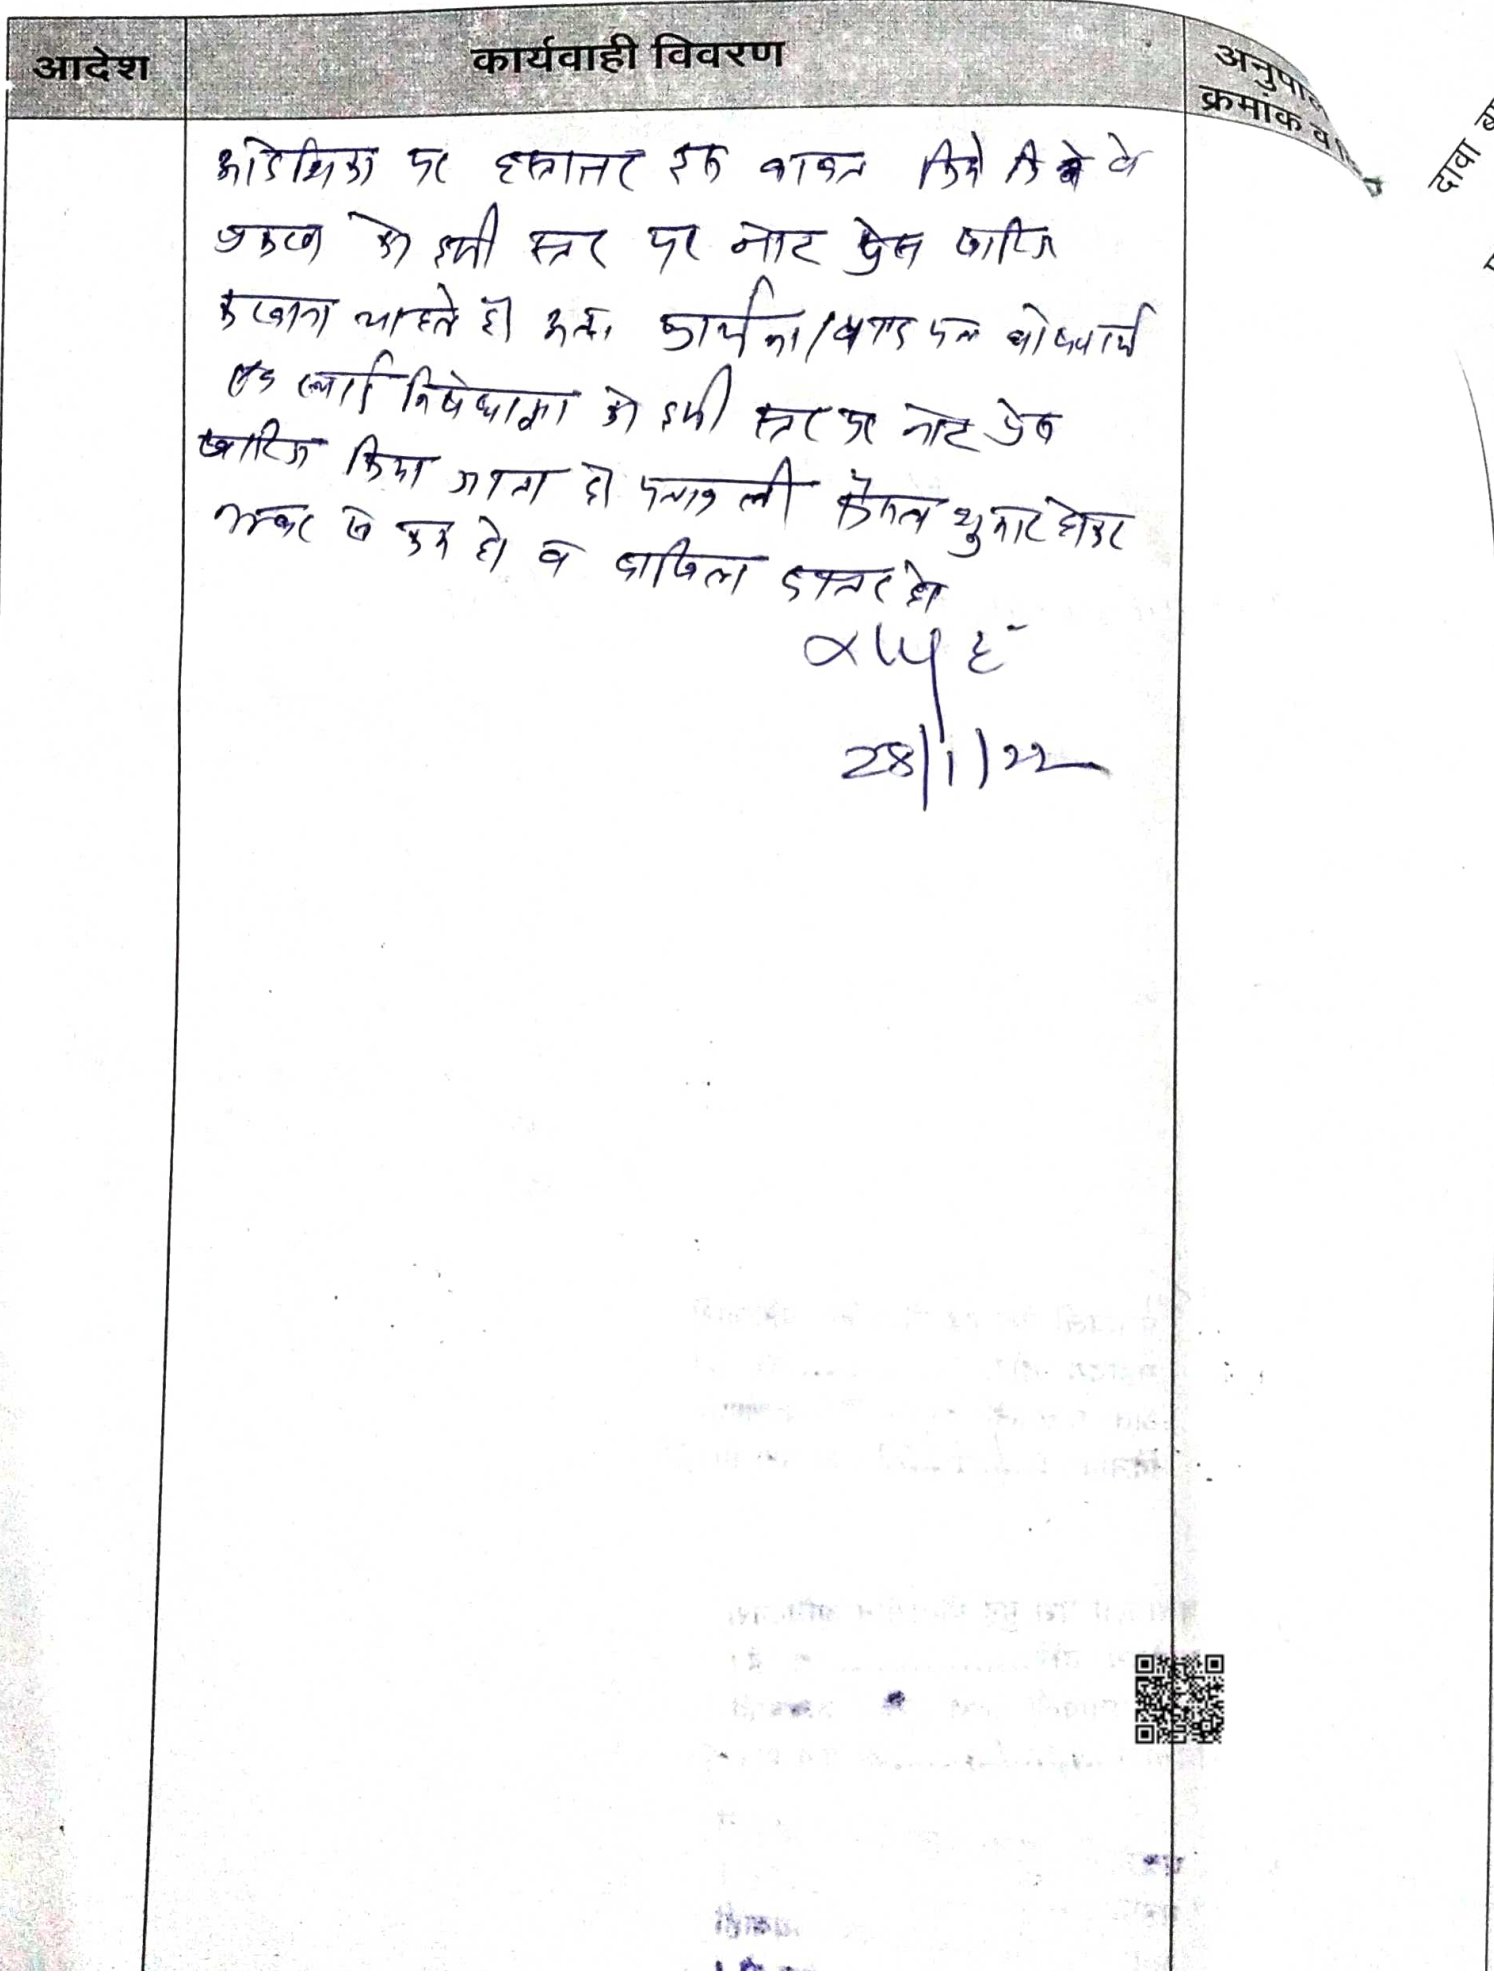 आदेश
कार्यवाही विवरण
अनुपा
क्रमांक व
दावा
पर हस्ताक्षर इस बाबत किये कि वे
प्रकरण को इसी स्तर पर नोट प्रेस खारिज
करवाना चाहते है। अतः प्रार्थना/वाद पत्र घोषणार्थ
एवं स्थाई निषेधाज्ञा को इसी स्तर पर नोट प्रेस
खारिज किया जाता है। पत्रावली फैसल शुमार होकर
नम्बर से कम हो व दाखिल दफ्तर हो
28/1/22